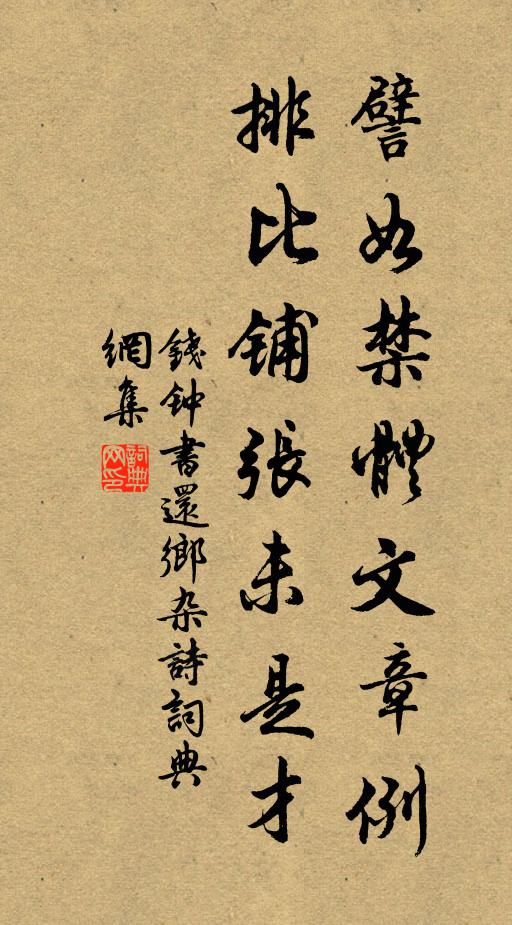 譬如禁體文章例
排比铺張未是才
錢钟書還鄉杂詩詞典
網集
詞典網印